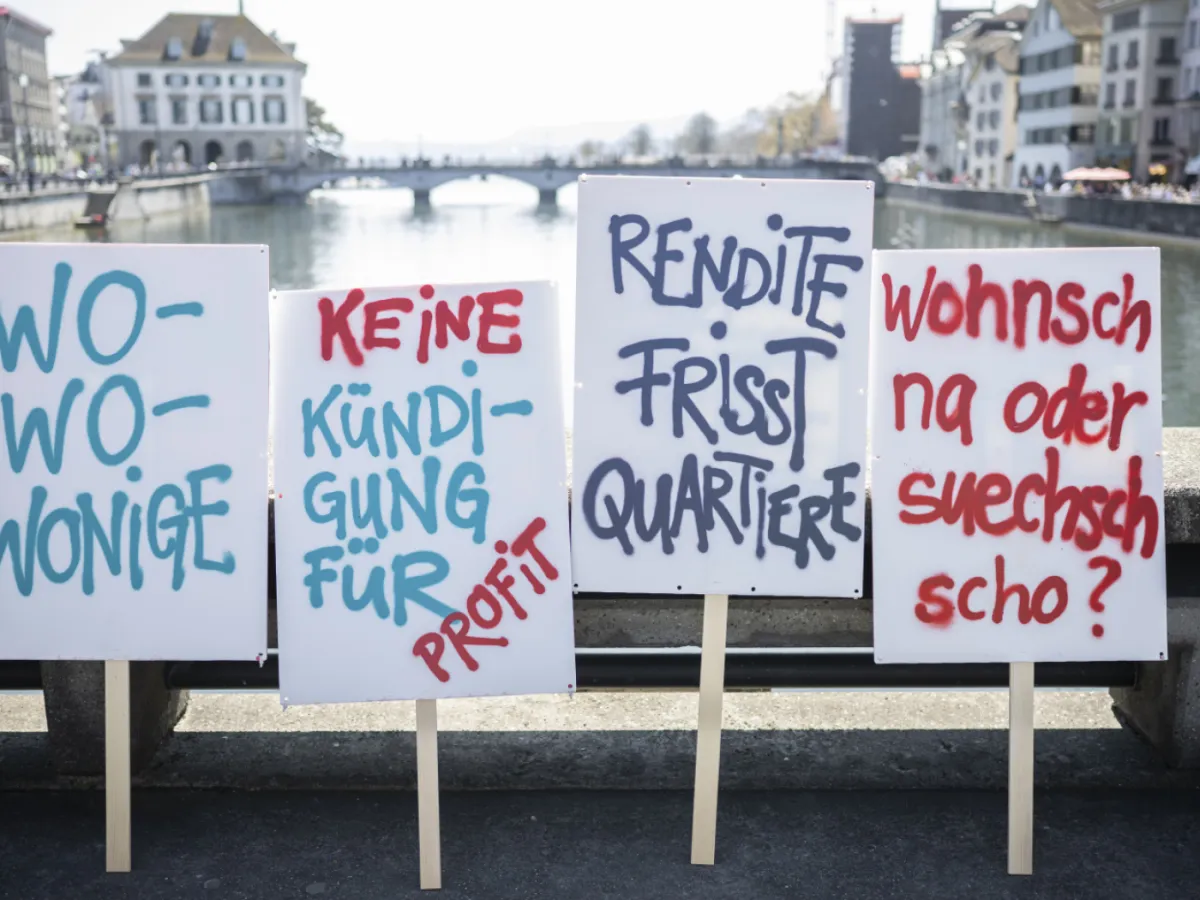 WO-
WO-
WONIGE
KEINE
KÜNDI-
GUNG
FÜR
PROFIT
RENDITE
FRISST
QUARTIERE
Wohnsch
na oder
suechsch
scho?